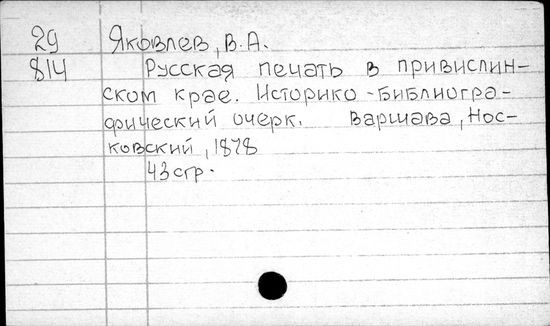 29 Яковлев, В.А.
814 Русская печать в привислин-
ском крае. Историко-библиогра-
фический очерк. Варшава, Нос-
ковский, 1878
43 стр.